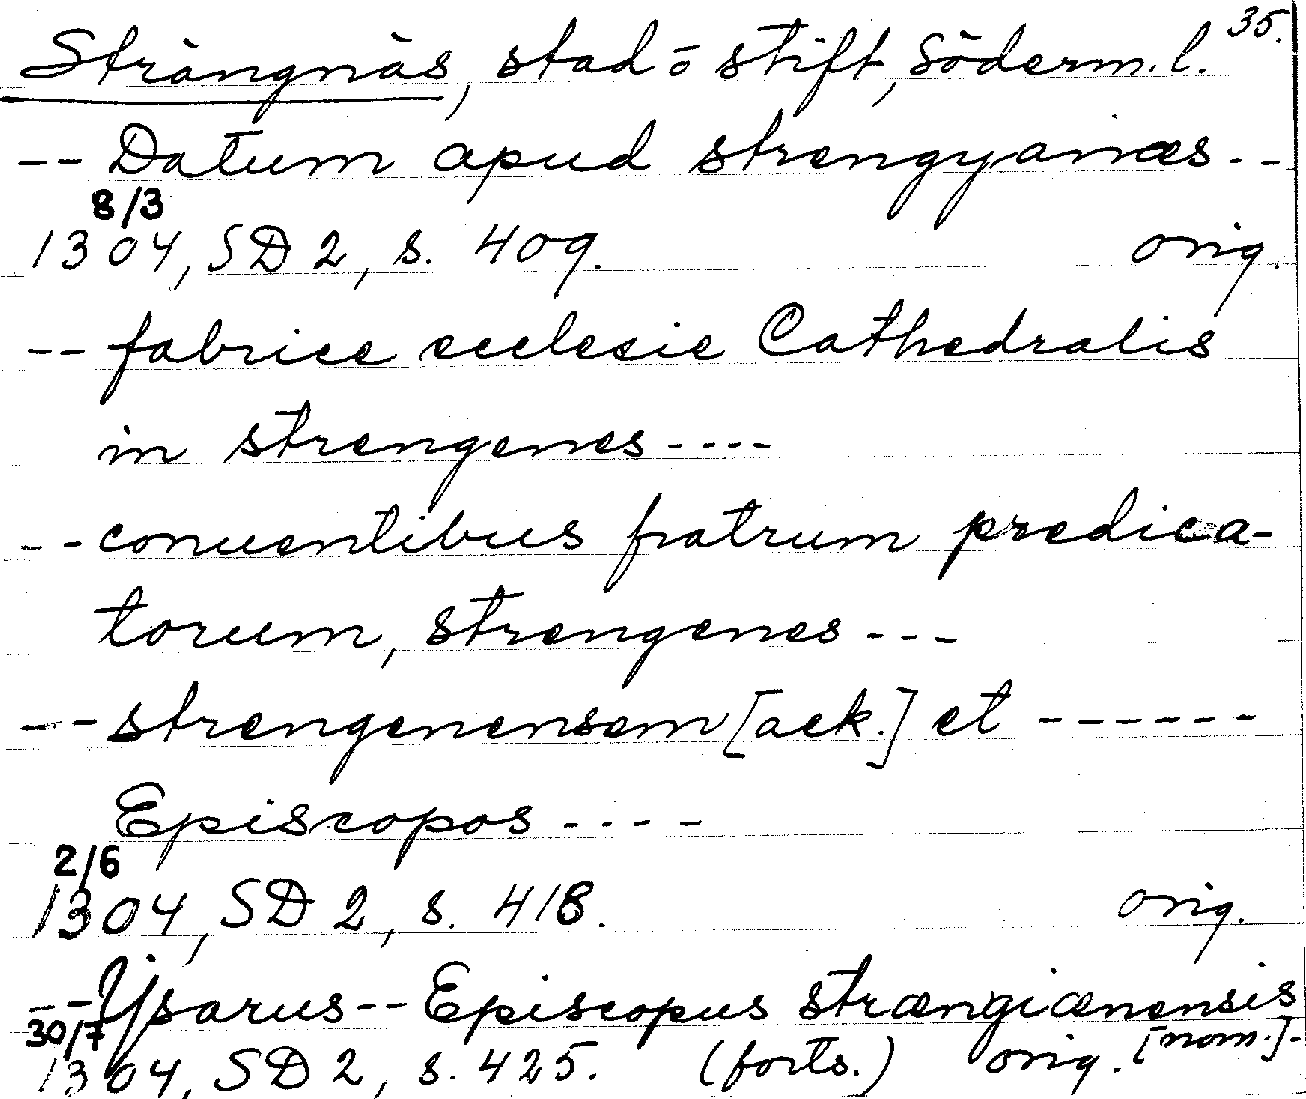 35.
Strängnäs, stad o stift, Söderm. l.
-- Datum apud strengyanæs. --
8/3
1304, SD 2, s. 409. orig.
-- fabrice ecclesie Cathedralis
in strengenes ----
-- conuentibus fratrum predica-
torum, strengenes ---
-- strengenensem [ack.] et ------
Episcopos ----
2/6
1304, SD 2, s. 418. orig.
-- Ysarus -- Episcopus strængiænensis
30/7 [nom.]-
1304, SD 2, s. 425. (forts.) orig.